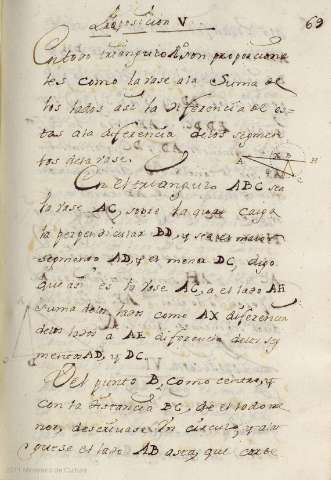 Proposicion V
69
En todo triangulo son proporciona
les como la vase a la suma de
los lados asi la diferencia de es
tas a la diferencia de los segmen
tos de la vase.
En el triangulo ABC sea
la vase AC, sobre la qual caiga
la perpendicular BD, y sea el maior
segmento AD, y el menor DC, digo
que asi es la vase AC, a el lado AH
suma de los lados como AX diferencia
de los lados a AE diferencia de los seg
mentos AD, y DC.
Del punto B, como centro, y
con la distancia BC, de el lado me
nor, descrivase un circulo, y alar
guese el lado AB asta, que corte
2011 Ministerio de Cultura